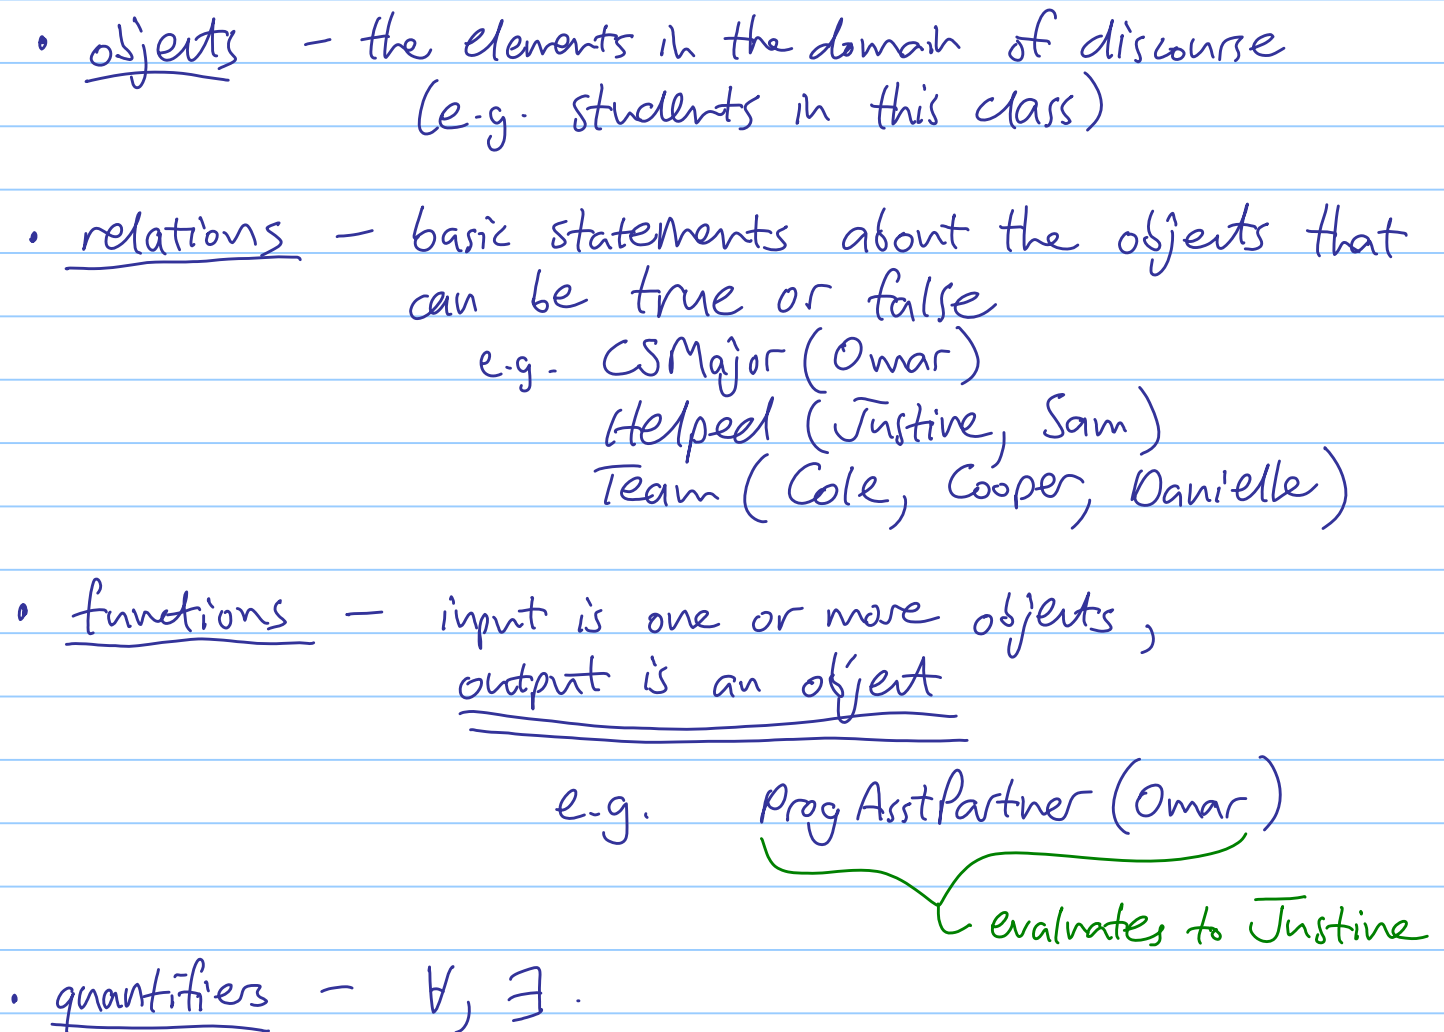 • objects – the elements in the domain of discourse
(e.g. students in this class)
• relations – basic statements about the objects that
can be true or false
e.g. CSMajor (Omar)
Helped (Justine, Sam)
Team (Cole, Cooper, Danielle)
• functions – input is one or more objects,
output is an object
e.g. ProgAsstPartner (Omar)
evaluates to Justine
• quantifiers – ∀, ∃.